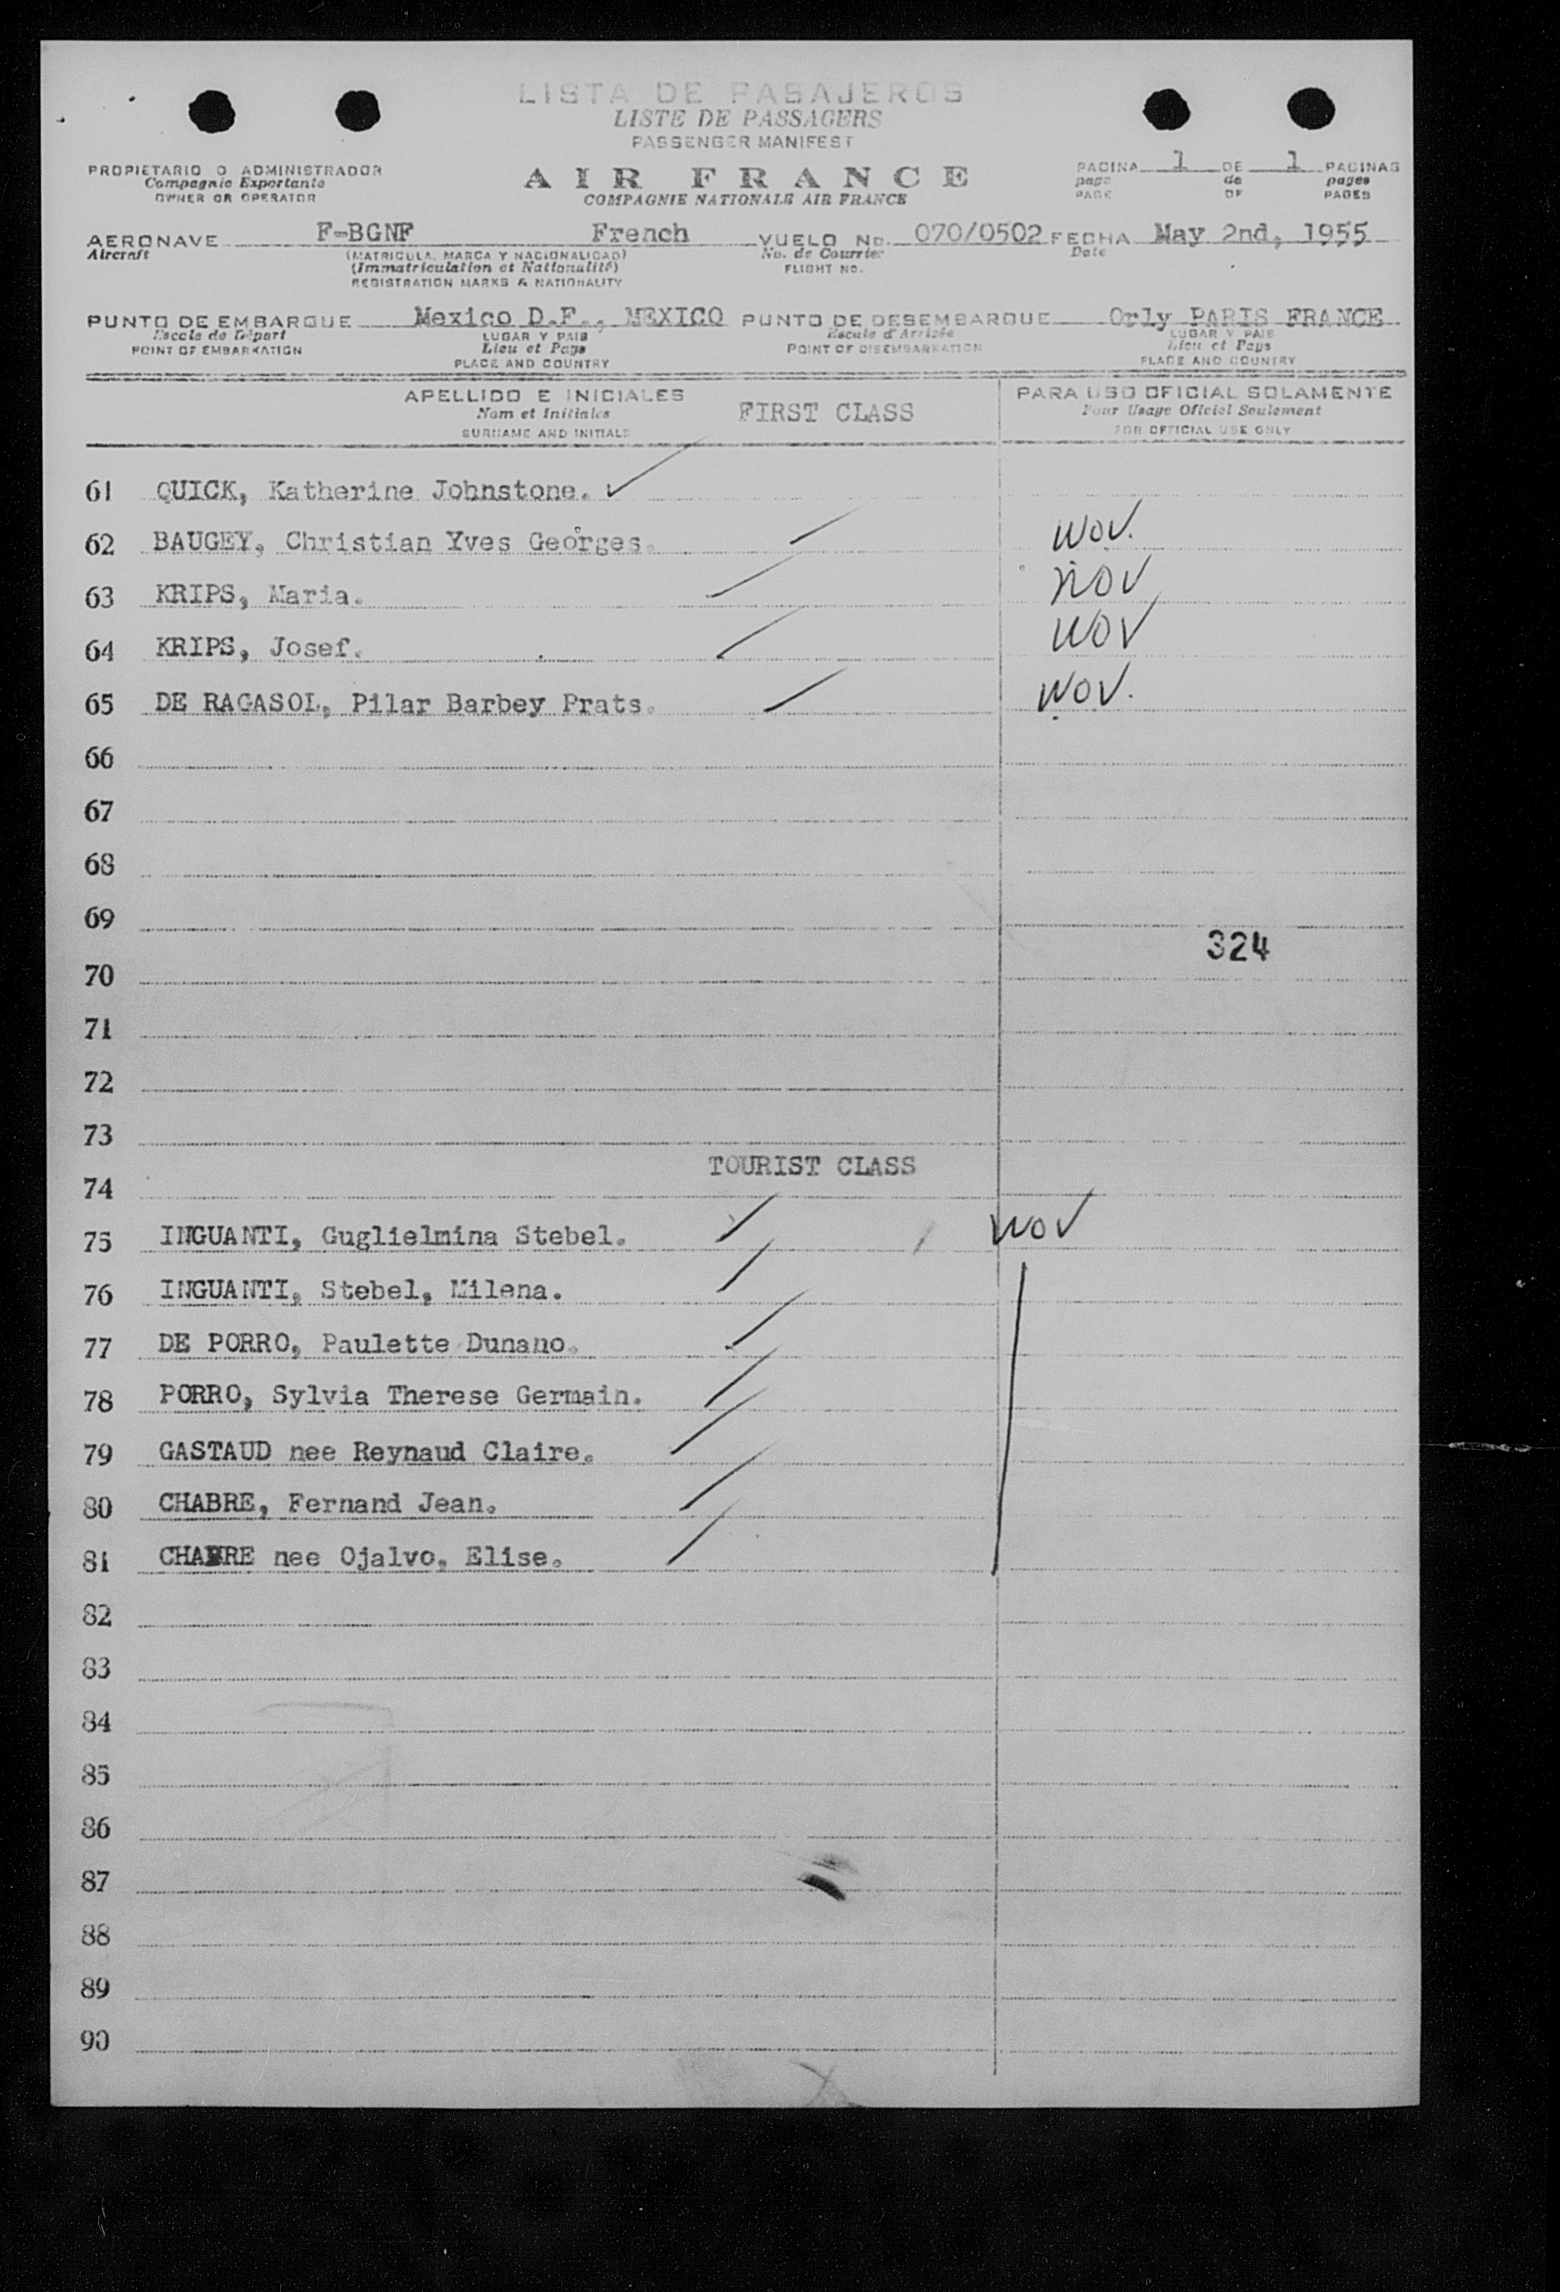 LISTA DE PASAJEROS
LISTE DE PASSAGERS
PASSENGER MANIFEST
PROPIETARIO O ADMINISTRADOR
Compagnie Exportante
OWNER OR OPERATOR
AIR FRANCE
COMPAGNIE NATIONALE AIR FRANCE
PAGINA 1 DE 1 PAGINAS
page de pages
PAGE OF PAGES
AERONAVE F-BGNF French VUELO No. 070/0502 FECHA May 2nd, 1955
Aircraft (MATRICULA, MARCA Y NACIONALIDAD) No. de Courrier Date
(Immatriculation et Nationalité) FLIGHT NO.
REGISTRATION MARKS & NATIONALITY
PUNTO DE EMBARQUE Mexico D.F., MEXICO PUNTO DE DESEMBARQUE Orly PARIS FRANCE
Escale de Départ LUGAR Y PAIS Escale d'Arrivée LUGAR Y PAIS
POINT OF EMBARKATION Lieu et Pays POINT OF DISEMBARKATION Lieu et Pays
PLACE AND COUNTRY PLACE AND COUNTRY
APELLIDO E INICIALES FIRST CLASS PARA USO OFICIAL SOLAMENTE
Nom et Initiales Pour Usage Oficiel Seulement
SURNAME AND INITIALS FOR OFFICIAL USE ONLY
61 QUICK, Katherine Johnstone.
62 BAUGEY, Christian Yves Georges. NOV.
63 KRIPS, Maria. NOV
64 KRIPS, Josef. NOV
65 DE RAGASOL, Pilar Barbey Prats. NOV.
66
67
68
69
324
70
71
72
73
TOURIST CLASS
74
75 INGUANTI, Guglielmina Stebel. NOV
76 INGUANTI, Stebel, Milena.
77 DE PORRO, Paulette Dunano.
78 PORRO, Sylvia Therese Germain.
79 GASTAUD nee Reynaud Claire.
80 CHABRE, Fernand Jean.
81 CHABRE nee Ojalvo, Elise.
82
83
84
85
86
87
88
89
90